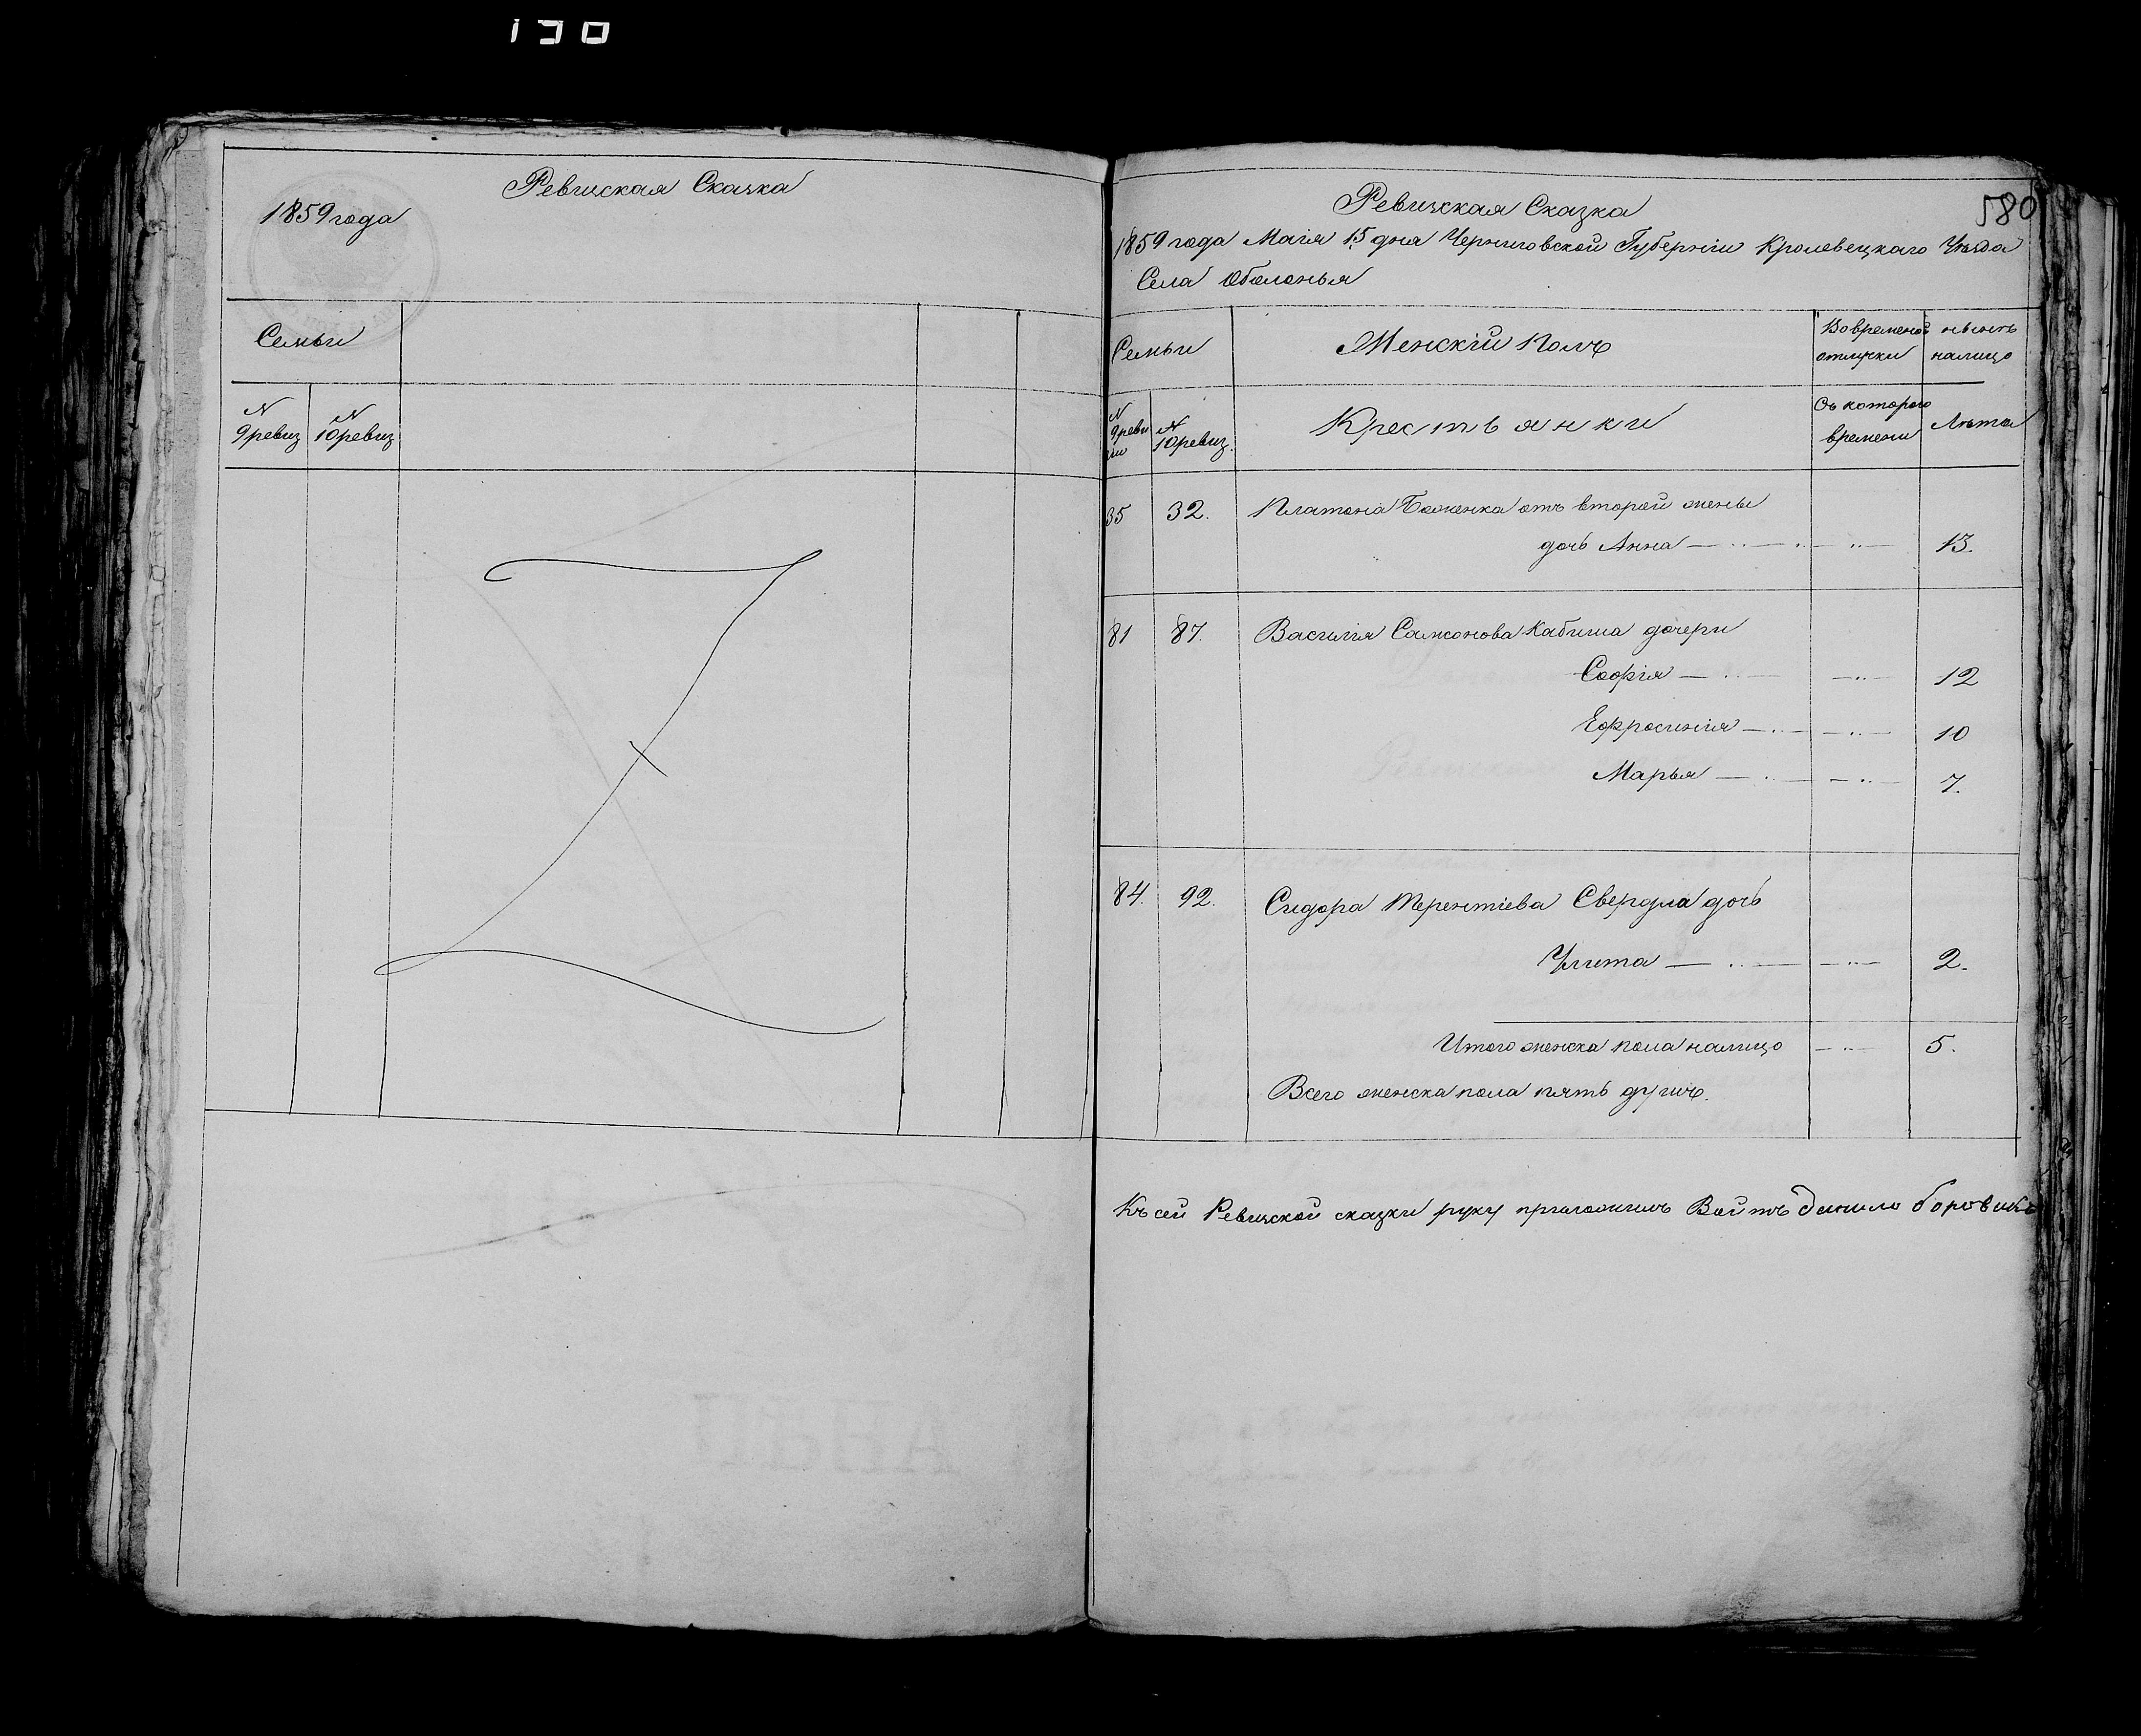 130
Ревизская Сказка
1859 года
Семьи
N 9 ревиз
N 10 ревиз
580
Ревизская Сказка
1859 года Маія 15 дня Черниговской Губерніи Кролевецкаго Уѣзда
Села Оболонья
Семьи
Женскій Полъ
Во временой отлучки
нынѣ налицо
N 9 ревизіи
N 10 ревиз.
Крестьянки
Съ котораго времени
Лѣта
35 32. Платона Боженка отъ второй жены
дочь Анна — 13.
81 87. Василія Самсонова Кабиша дочери
Софія — 12
Ефросинія — 10
Марья — 7.
84. 92. Сидора Терентіева Свердла дочь
Улита — 2.
Итого женска пола налицо — 5.
Всего женска пола пять душъ.
Къ сей Ревизской сказки руку приложилъ Войтъ данило боровикъ